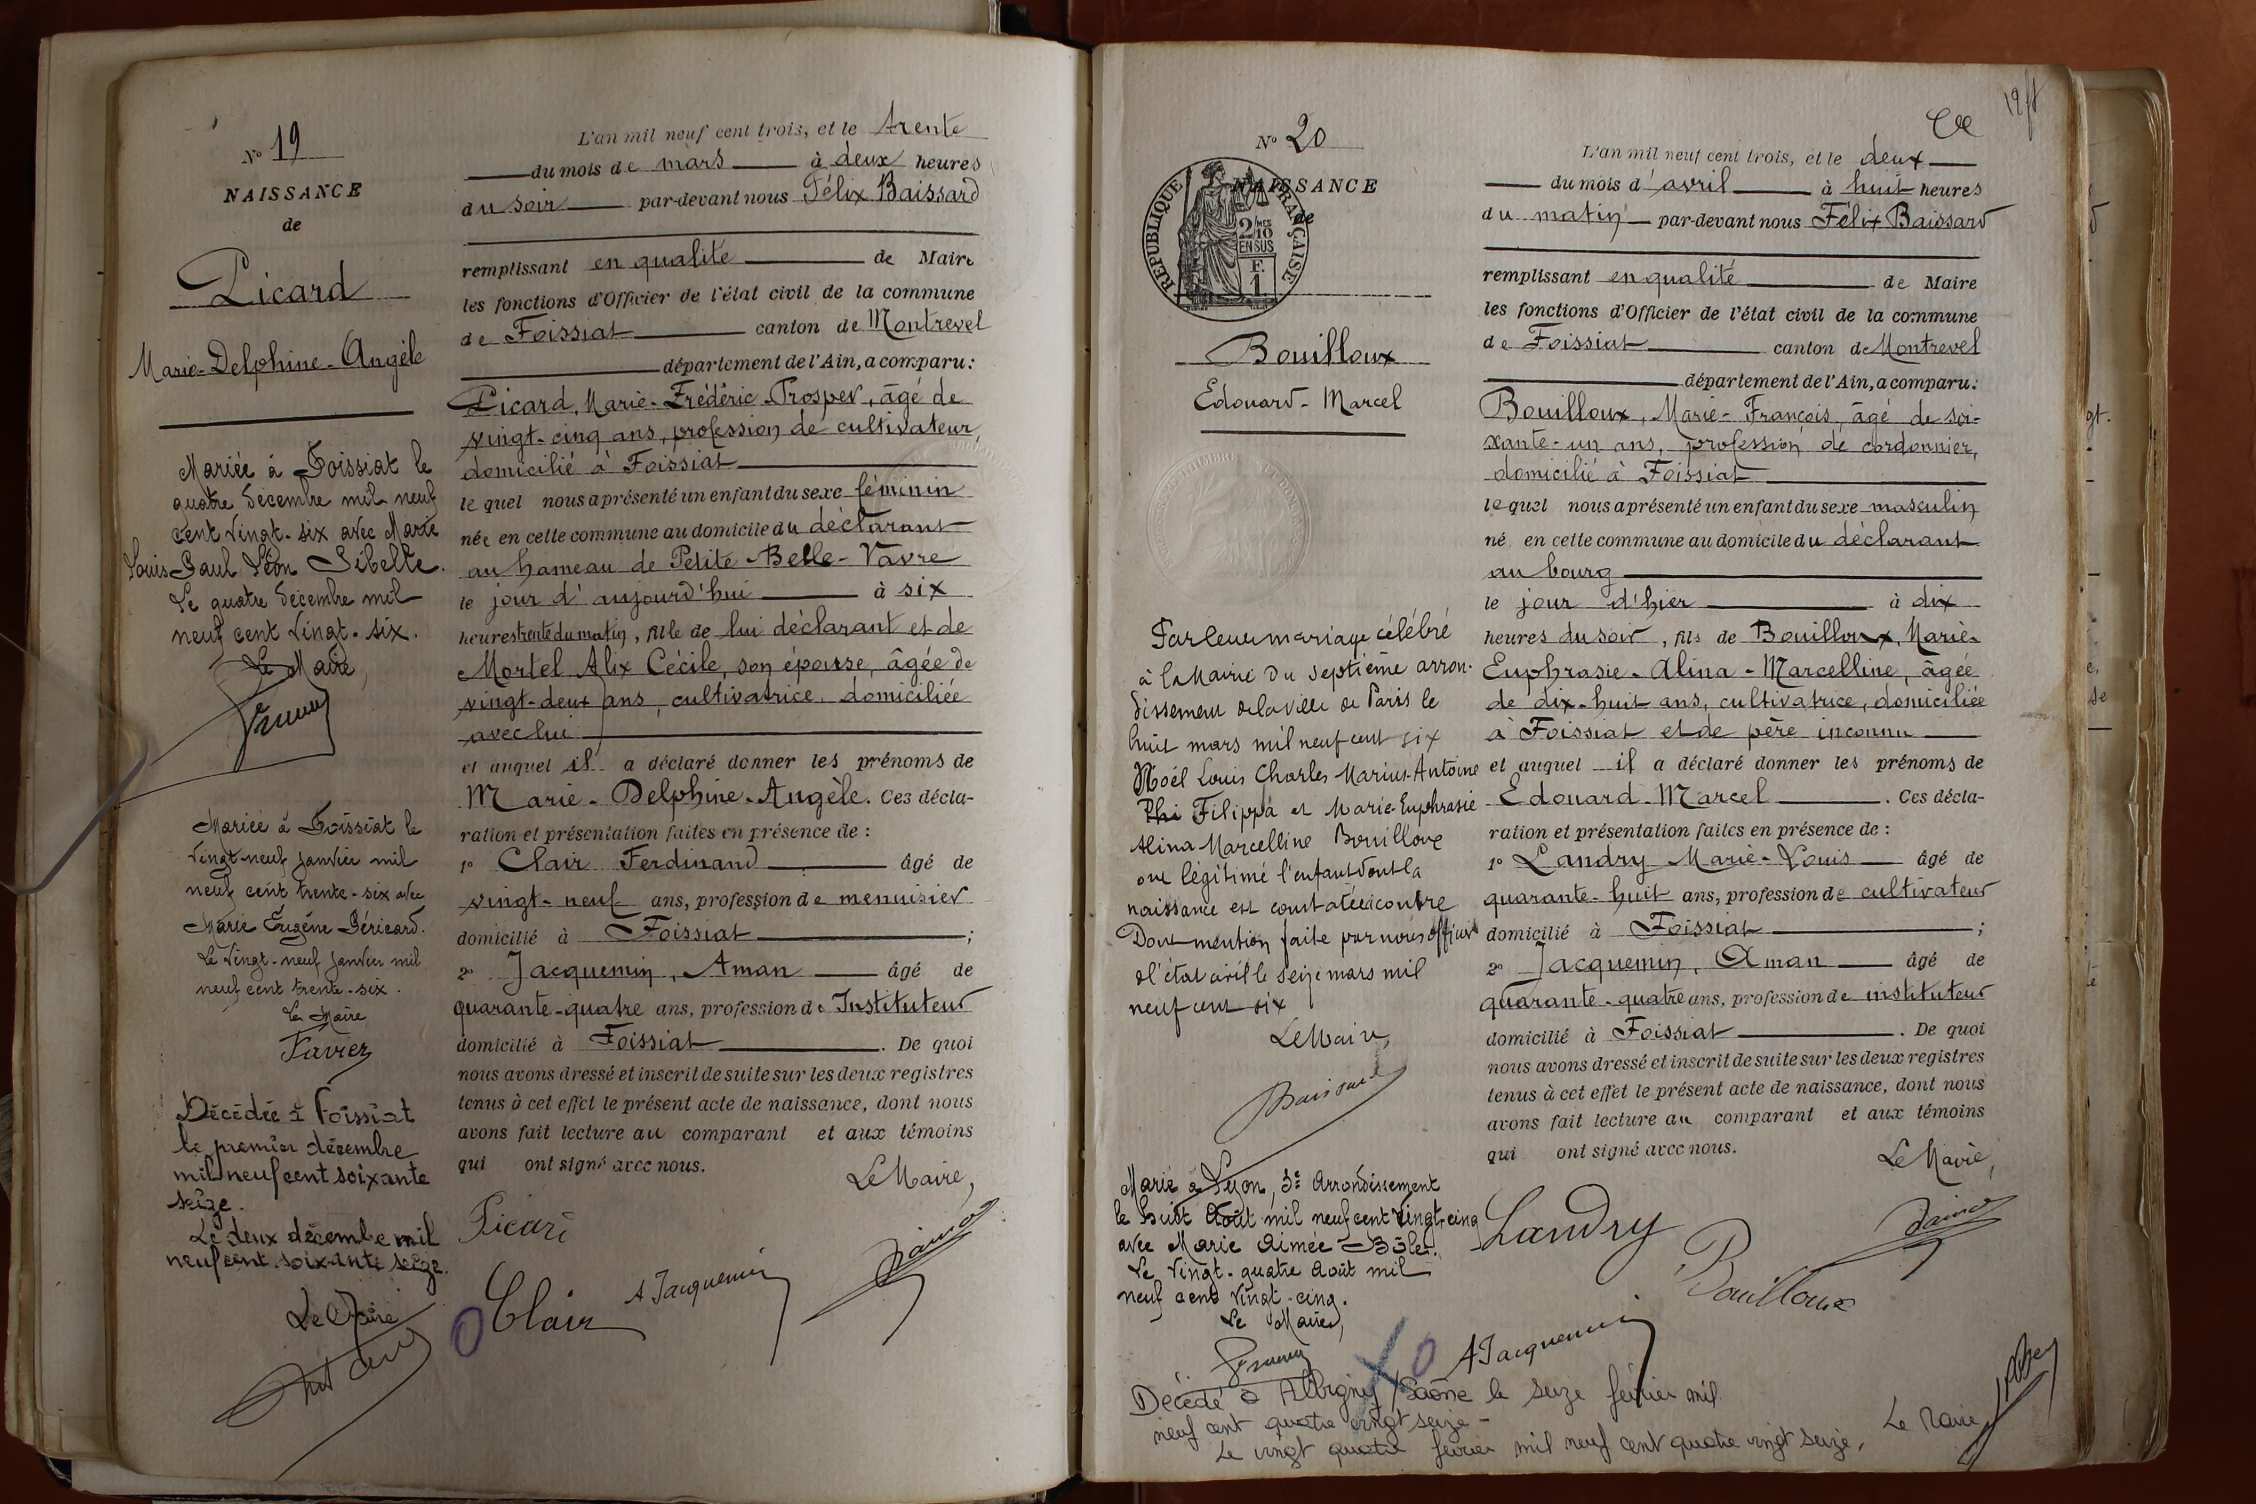 N° 19
NAISSANCE
de
Picard
Marie-Delphine-Angèle
Mariée à Foissiat le
quatre décembre mil neuf
cent vingt-six avec Marie
Louis Paul Léon Sibelle.
Le quatre décembre mil
neuf cent vingt-six.
Le Maire,
Mariée à Foissiat le
vingt-neuf janvier mil
neuf cent trente-six avec
Marie Eugène Géricard.
Le vingt-neuf janvier mil
neuf cent trente-six.
Le Maire
Favier
Décédée à Foissiat
le premier décembre
mil neuf cent soixante
seize.
Le deux décembre mil
neuf cent soixante seize.
Le Maire
L'an mil neuf cent trois, et le trente
du mois de mars à deux heures
du soir par-devant nous Félix Baissard
remplissant en qualité de Maire
les fonctions d'Officier de l'état civil de la commune
de Foissiat canton de Montrevel
département de l'Ain, a comparu:
Picard, Marie-Frédéric-Prosper, âgé de
vingt-cinq ans, profession de cultivateur,
domicilié à Foissiat
lequel nous a présenté un enfant du sexe féminin
née en cette commune au domicile du déclarant
au hameau de Petite-Belle-Vavre
le jour d'aujourd'hui à six
heures trente du matin, fille de lui déclarant et de
Mortel Alix Cécile, son épouse, âgée de
vingt-deux ans, cultivatrice, domiciliée
avec lui
et auquel il a déclaré donner les prénoms de
Marie-Delphine-Angèle. Ces décla-
ration et présentation faites en présence de :
1° Clair Ferdinand âgé de
vingt-neuf ans, profession de menuisier
domicilié à Foissiat ;
2° Jacquemin, Aman âgé de
quarante-quatre ans, profession de Instituteur
domicilié à Foissiat. De quoi
nous avons dressé et inscrit de suite sur les deux registres
tenus à cet effet le présent acte de naissance, dont nous
avons fait lecture au comparant et aux témoins
qui ont signé avec nous.
Le Maire,
Picard
Clair A Jacquemin
12
N° 20
NAISSANCE
de
REPUBLIQUE FRANÇAISE
2/10
EN SUS
F.
1
Bouilloux
Edouard-Marcel
Par leur mariage célébré
à la Mairie du septième arron-
dissement de la ville de Paris le
huit mars mil neuf cent six
Noél Louis Charles Marius-Antoine
Phi Filippa et Marie-Euphrasie
Alina Marcelline Bouilloux
ont légitimé l'enfant dont la
naissance est constatée ci contre
Dont mention faite par nous officier
de l'état civil le seize mars mil
neuf cent six
Le Maire,
Baissard
Marié à Lyon, 3e Arrondissement
le huit Août mil neuf cent vingt cinq
avec Marie Aimée
Le vingt-quatre Août mil
neuf cent vingt-cinq.
Le Maire,
L'an mil neuf cent trois, et le deux
du mois d'avril à huit heures
du matin par-devant nous Félix Baissard
remplissant en qualité de Maire
les fonctions d'Officier de l'état civil de la commune
de Foissiat canton de Montrevel
département de l'Ain, a comparu:
Bouilloux, Marie-François, âgé de soi-
xante-un ans, profession de cordonnier,
domicilié à Foissiat
lequel nous a présenté un enfant du sexe masculin
né en cette commune au domicile du déclarant
au bourg
le jour d'hier à dix
heures du soir, fils de Bouilloux, Marie-
Euphrasie-Alina-Marcelline, âgée
de dix-huit ans, cultivatrice, domiciliée
à Foissiat et de père inconnu
et auquel il a déclaré donner les prénoms de
Edouard-Marcel. Ces décla-
ration et présentation faites en présence de :
1° Landry Marie-Louis âgé de
quarante-huit ans, profession de cultivateur
domicilié à Foissiat ;
2° Jacquemin, Aman âgé de
quarante-quatre ans, profession de instituteur
domicilié à Foissiat. De quoi
nous avons dressé et inscrit de suite sur les deux registres
tenus à cet effet le présent acte de naissance, dont nous
avons fait lecture au comparant et aux témoins
qui ont signé avec nous.
Le Maire,
Landry
Bouilloux
A Jacquemin
Décédé à Albigny/Saône le seize février mil
neuf cent quatre vingt seize -
Le vingt quatre février mil neuf cent quatre vingt seize,
Le Maire